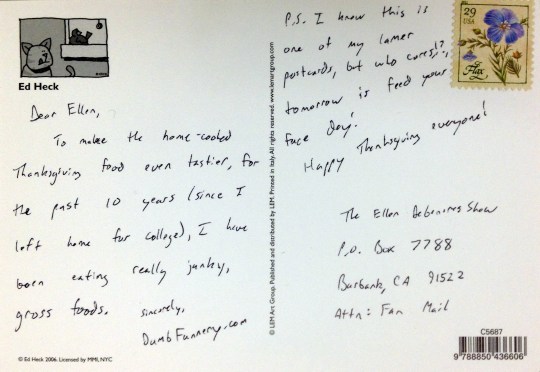 Ed Heck
Dear Ellen,
To make the home-cooked
Thanksgiving food even tastier, for
the past 10 years (since I
left home for college), I have
been eating really junky,
gross foods.
Sincerely,
DumbFunnery.com
© Ed Heck 2006. Licensed by MMI, NYC
© LEM Art Group. Published and distributed by LEM. Printed in Italy. All rights reserved. www.lemartgroup.com
P.S. I know this is
one of my lamer
postcards, but who cares!?,
tomorrow is feed your
face day!
Happy Thanksgiving everyone!
29
USA
Flax
The Ellen Degeneres Show
P.O. Box 7788
Burbank, CA 91522
Attn: Fan Mail
C5687
9 788850 436606